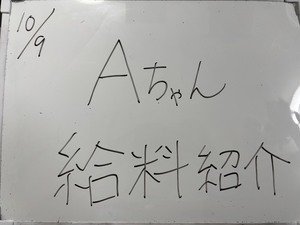 10/9
Aちゃん
給料紹介